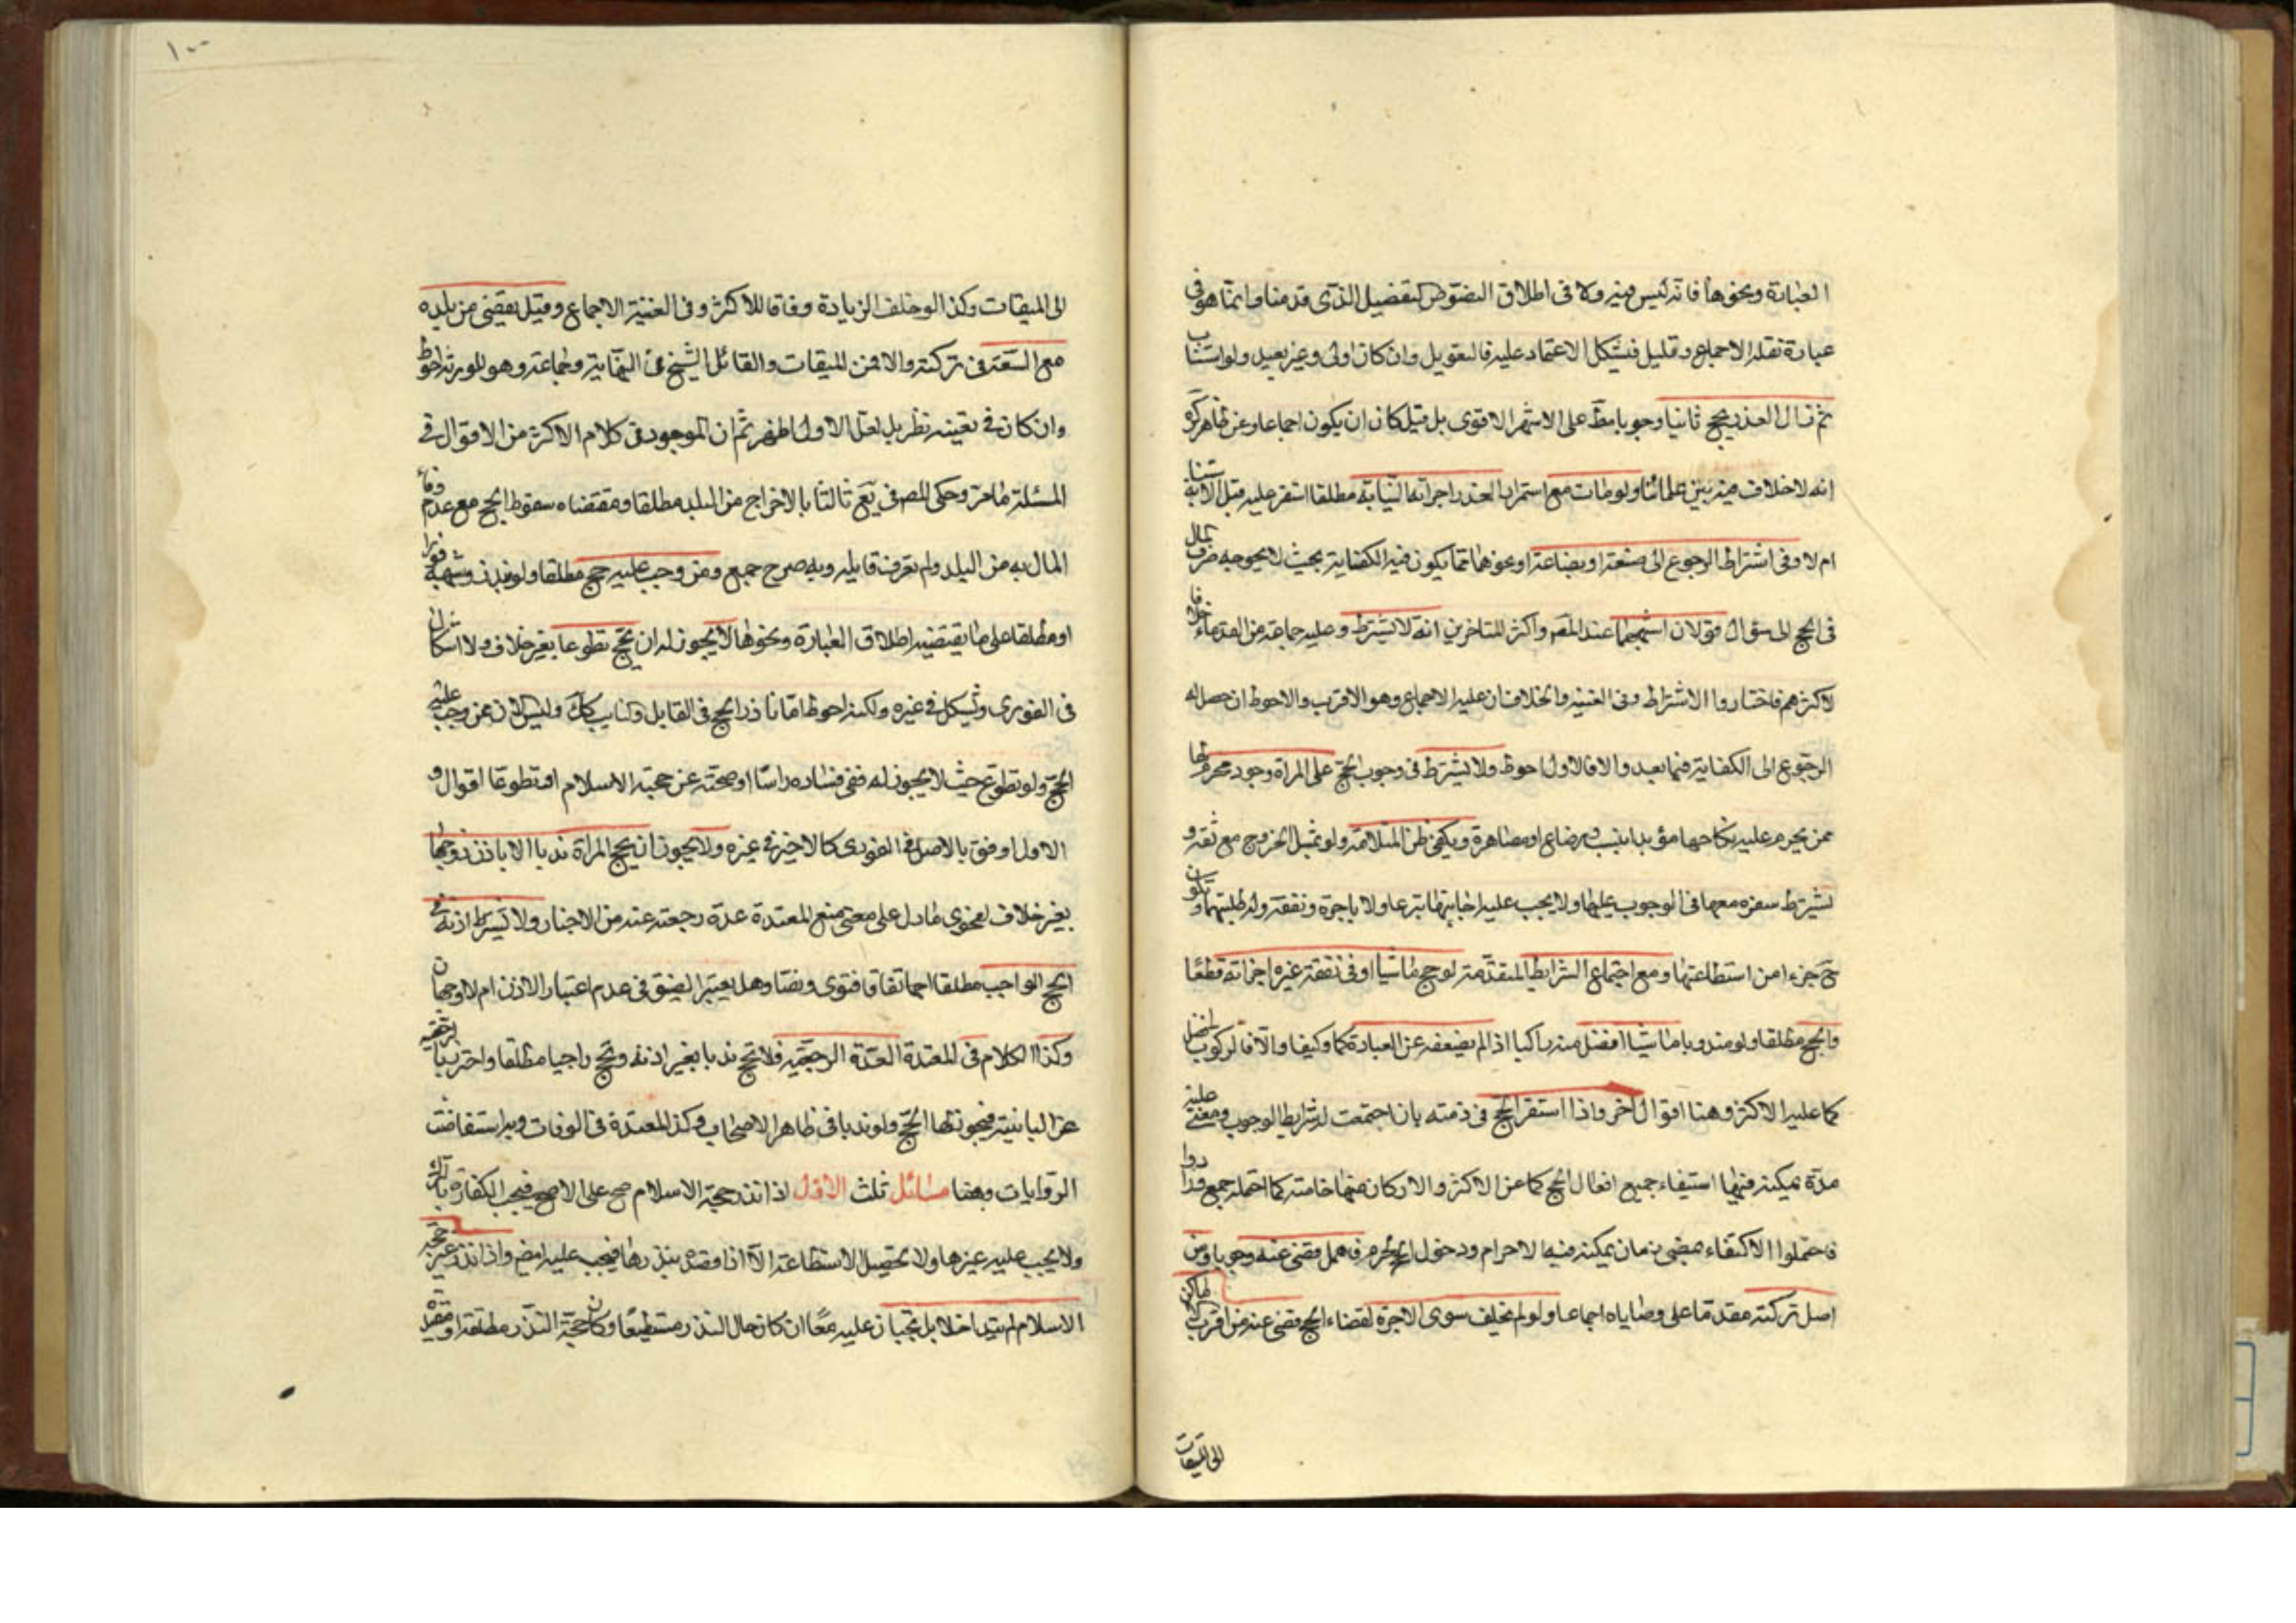 العبارة ونحوها فانه ليس فيه ولا في اطلاق النصوص التفصيل الذي قدمنا وانما هو في
عبارة نقلة الاجماع وقليل فيشكل الاعتماد عليه فالتعويل وان كان اولى وغير بعيد ولو استناب
ثم زال العذر يحج ثانيا وجوبا مط على الاشهر الاقوى بل قيل كان ان يكون اجماعا وعن ظاهر كره
انه لا خلاف فيه بين علمائنا ولو مات مع استمرار العذر اجزأته النيابة مطلقا استقر عليه قبل الاستنابة
ام لا وفي اشتراط الرجوع الى صنعة او بضاعة او نحوهما مما يكون فيه الكفاية بحيث لا يحوجه صرف المال
في الحج الى سؤال قولان اشبههما عند المص واكثر المتاخرين انه لا يشترط وعليه جماعة من القدماء خلافا
لاكثرهم فاختاروا الاشتراط وفي الغنية والخلاف ان عليه الاجماع وهو الاقرب والاحوط ان حصل له
الرجوع الى الكفاية فيما بعد والا فالاول احوط ولا يشترط في وجوب الحج على المراة وجود محرم لها
ممن يحرم عليه نكاحها مؤبدا بنسب او رضاع او مصاهرة ويكفي ظن السلامة ولو لم يمكن الخروج مع ثقة و
يشترط سفره معها في الوجوب عليها ولا يجب عليه اجابتها تبرعا ولا باجرة ونفقة وله طلبهما وتكون
ح جزءا من استطاعتها ومع اجتماع الشرايط المتقدمة لو حج ماشيا او في نفقة غيره اجزأته قطعا
والحج مطلقا ولو مندوبا ماشيا افضل منه راكبا اذا لم يضعفه عن العبادة كما وكيفا والا فالركوب افضل
كما عليه الاكثر وهنا اقوال اخر واذا استقر الحج في ذمته بان اجتمعت له شرايط الوجوب ومضى عليه
مدة يمكنه فيها استيفاء جميع افعال الحج كما عن الاكثر والاركان منها خاصة كما احتمله جمع وزادوا
فاحتملوا الاكتفاء بمضي زمان يمكنه فيه الاحرام ودخول الحرم فاهمل قضي عنه وجوبا ومن
اصل تركته مقدما على وصاياه اجماعا ولو لم يخلف سوى الاجرة لقضاء الحج قضي عنه من اقرب الاماكن
الى الميقات
١٠٠
الى الميقات وكذا لو خلف الزيادة وفاقا للاكثر وفي الغنية الاجماع وقيل يقضى من بلده
مع السعة في تركته والا فمن الميقات والقائل الشيخ في النهاية وجماعة وهو للورثة احوط
وان كان في تعينه نظر بل لعل الاول اظهر ثم ان الموجود في كلام الاكثر من الاقوال في
المسئلة ما مر وحكى المص في يع ثالثا بالاخراج من البلد مطلقا ومقتضاه سقوط الحج مع عدم وفاء
المال به من البلد ولم نعرف قايله وبه صرح جمع ومن وجب عليه حج مطلقا ولو بنذر وشبهه فورا
او مطلقا على ما يقتضيه اطلاق العبارة ونحوها لا يجوز له ان يحج تطوعا بغير خلاف ولا اشكال
في الفوري ويشكل في غيره ولكنه احوط اما ناذر الحج في القابل والنايب كك وليس الان ممن وجب عليه
الحج ولو تطوع حيث لا يجوز له ففي فساده راسا او صحته عن حجة الاسلام او تطوعا اقوال و
الاول اوفق بالاصل في الفوري كالاخير في غيره ولا يجوز ان يحج المراة ندبا الا باذن زوجها
بغير خلاف لفحوى ما دل على معنى منع المعتدة عدة رجعة عنه من الاخبار ولا يشترط اذنه في
الحج الواجب مطلقا اجماعا اتفاقا فتوى ونصا وهل يعتبر الضيق في عدم اعتبار الاذن ام لا وجهان
وكذا الكلام في المعتدة العدة الرجعية فلا تحج ندبا بغير اذنه وتحج واجبا مطلقا واحترز بالرجعية
عن البائنة فيجوز لها الحج ولو ندبا في ظاهر الاصحاب وكذا المعتدة في الوفات وبه استفاضت
الروايات وهنا مسائل ثلث الاول اذا نذر حجة الاسلام صح على الاصح فيجب الكفارة بالترك
ولا يجب عليه غيرها ولا تحصيل الاستطاعة الا اذا قصد بنذرها فيجب عليه ايضا واذا نذر غير حجة
الاسلام لم يتداخلا بل تجبان عليه معا ان كان حال النذر مستطيعا وكان حجة النذر مطلقة او مقيدة